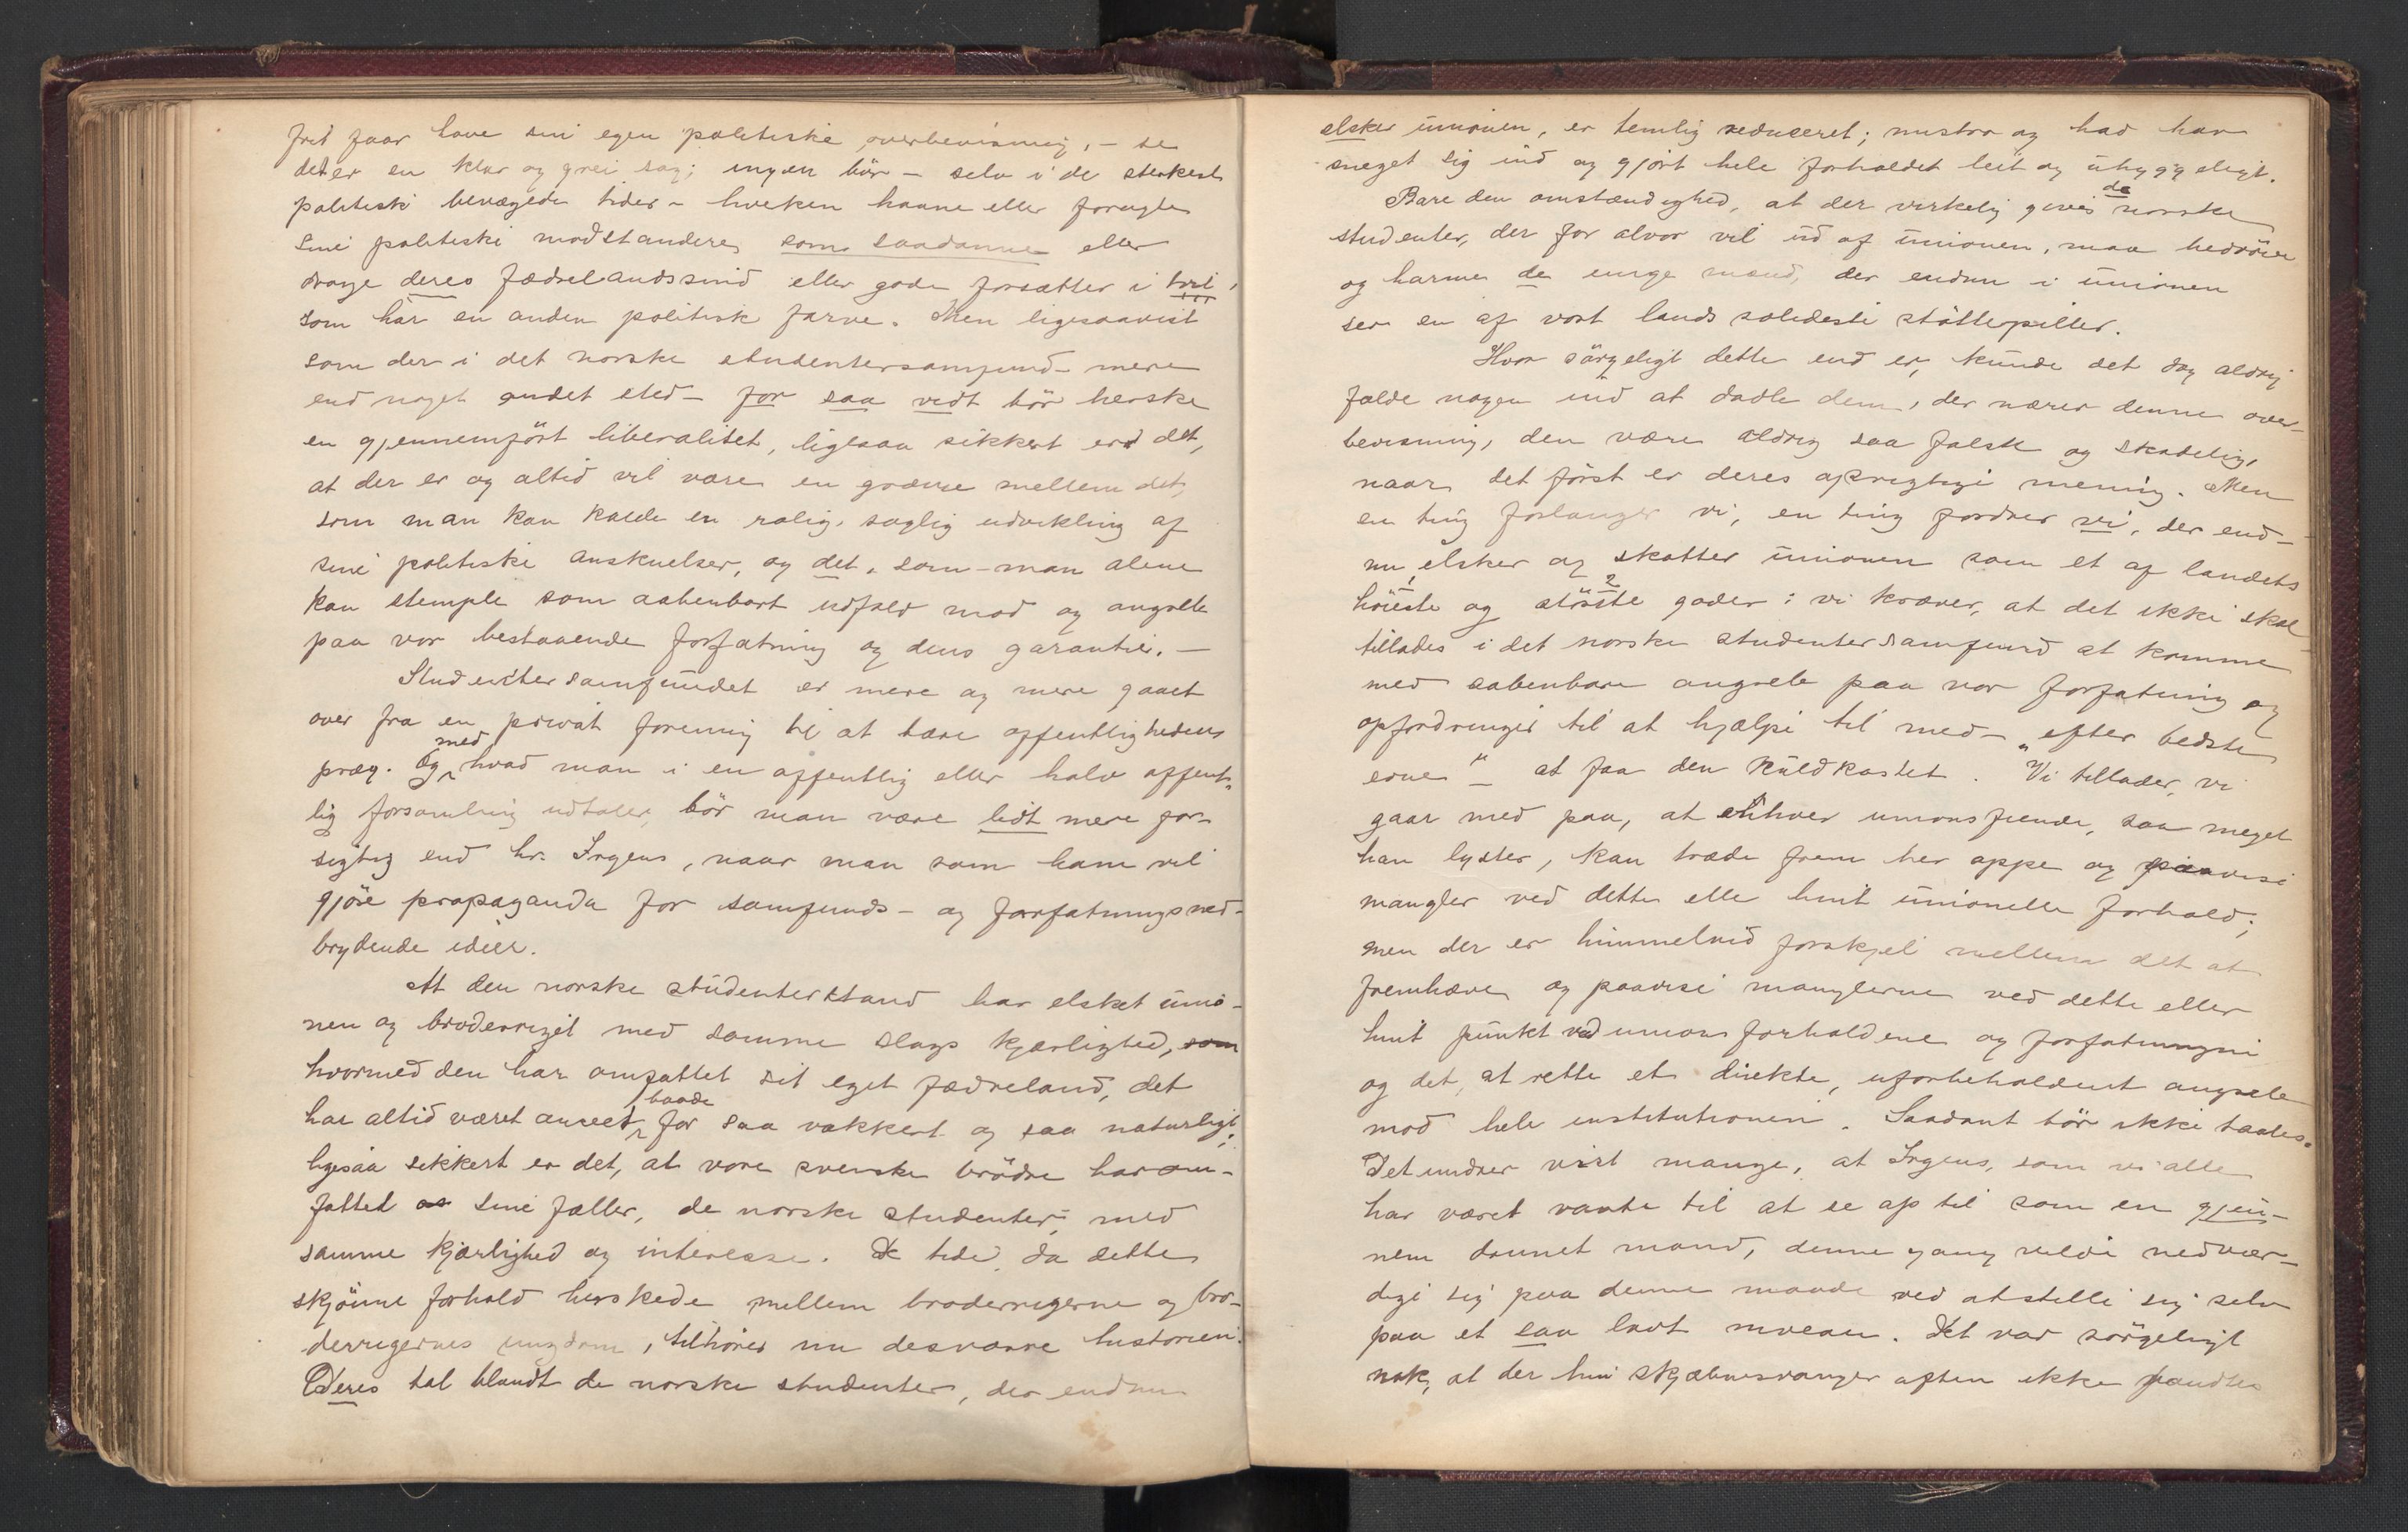 frit faar have sin egen politiske overbevisning, – se
det er en klar og grei sag; ingen bör – selv i de sterkest
politisk bevægede tider – hverken haane eller foragte
sine politiske modstandere som saadanne eller
drage deres fædrelandssind eller gode forsætter i tvil,
som har en anden politisk farve. Men ligesaavist
som der i det norske studentersamfund – mere
end noget andet sted – for saa vidt bör herske
en gjennemfört liberalitet, ligesaa sikkert er det,
at der er og altid vil være en grænse mellem det,
som man kan kalde en rolig, saglig udvikling af
sine politiske anskuelser, og det, som man alene
kan stemple som aabenbart udfald mod og angreb
paa vor bestaaende forfatning og dens garantie. –
Studentersamfundet er mere og mere gaaet
over fra en privat forening til at bære offentlighedens
præg. Og med hvad man i en offentlig eller halv offent-
lig forsamling udtaler, bör man være lidt mere for-
sigtig end hr. Irgens, naar man som ham vil
gjöre propaganda for samfunds- og forfatningsned-
brydende ideer.
At den norske studenterstand har elsket unio-
nen og broderriget med samme slags kjærlighed, som
hvormed den har omfattet sit eget fædreland, det
har altid været anseet baade for saa vakkert og saa naturligt;
ligesaa sikkert er det, at vore svenske brödre har om-
fattet os sine fæller, de norske studenter, med
samme kjærlighed og interesse. De tider, da dette
skjönne forhold herskede mellem broderrigerne og bro-
derrigernes ungdom, tilhörer nu desværre historien.
Deres tal blandt de norske studenter, der endnu
elsker unionen, er temlig reduceret; mistro og had har
sneget sig ind og gjort hele forholdet leit og uhyggeligt.
Bare den omstændighed, at der virkelig gives de norske
studenter, der for alvor vil ud af unionen, maa bedröve
og harme de unge mænd, der endnu i unionen
ser en af vort lands solideste stöttepiller.
Hvor sörgeligt dette end er, kunde det dog aldrig
falde nogen ind at dadle dem, der nærer denne over-
bevisning, den være aldrig saa falsk og skadelig,
naar det först er deres oprigtige mening. Men
en ting forlanger vi, en ting fordrer vi, der end-
nu elsker og skatter unionen som et af landets
höieste og 2 störste goder: vi kræver, at det ikke skal
tillades i det norske studentersamfund at komme
med aabenbare angreb paa vor forfatning og
opfordringer til at hjælpe til med – "efter bedste
evne" – at faa den kuldkastet. Vi tillader, vi
gaar med paa, at enhver unionsfiende, saa meget
han lyster, kan træde frem her oppe og paavise
mangler ved dette eller hint unionelle forhold;
men der er himmelvid forskjel mellem det at
fremhæve og paavise manglerne ved dette eller
hint punkt ved unionsforholdene og forfatningen
og det, at rette et direkte, uforbeholdent angreb
mod hele institutionen. Saadant bör ikke taales.
Det undrer vist mange, at Irgens, som vi alle
har været vante til at se op til som en gjen-
nem dannet mand, denne gang vilde nedvær-
dige sig paa denne maade ved at stille sig selv
paa et saa lavt niveau. Det var sörgeligt
nok, at der hin skjæbnesvangre aften ikke fandtes